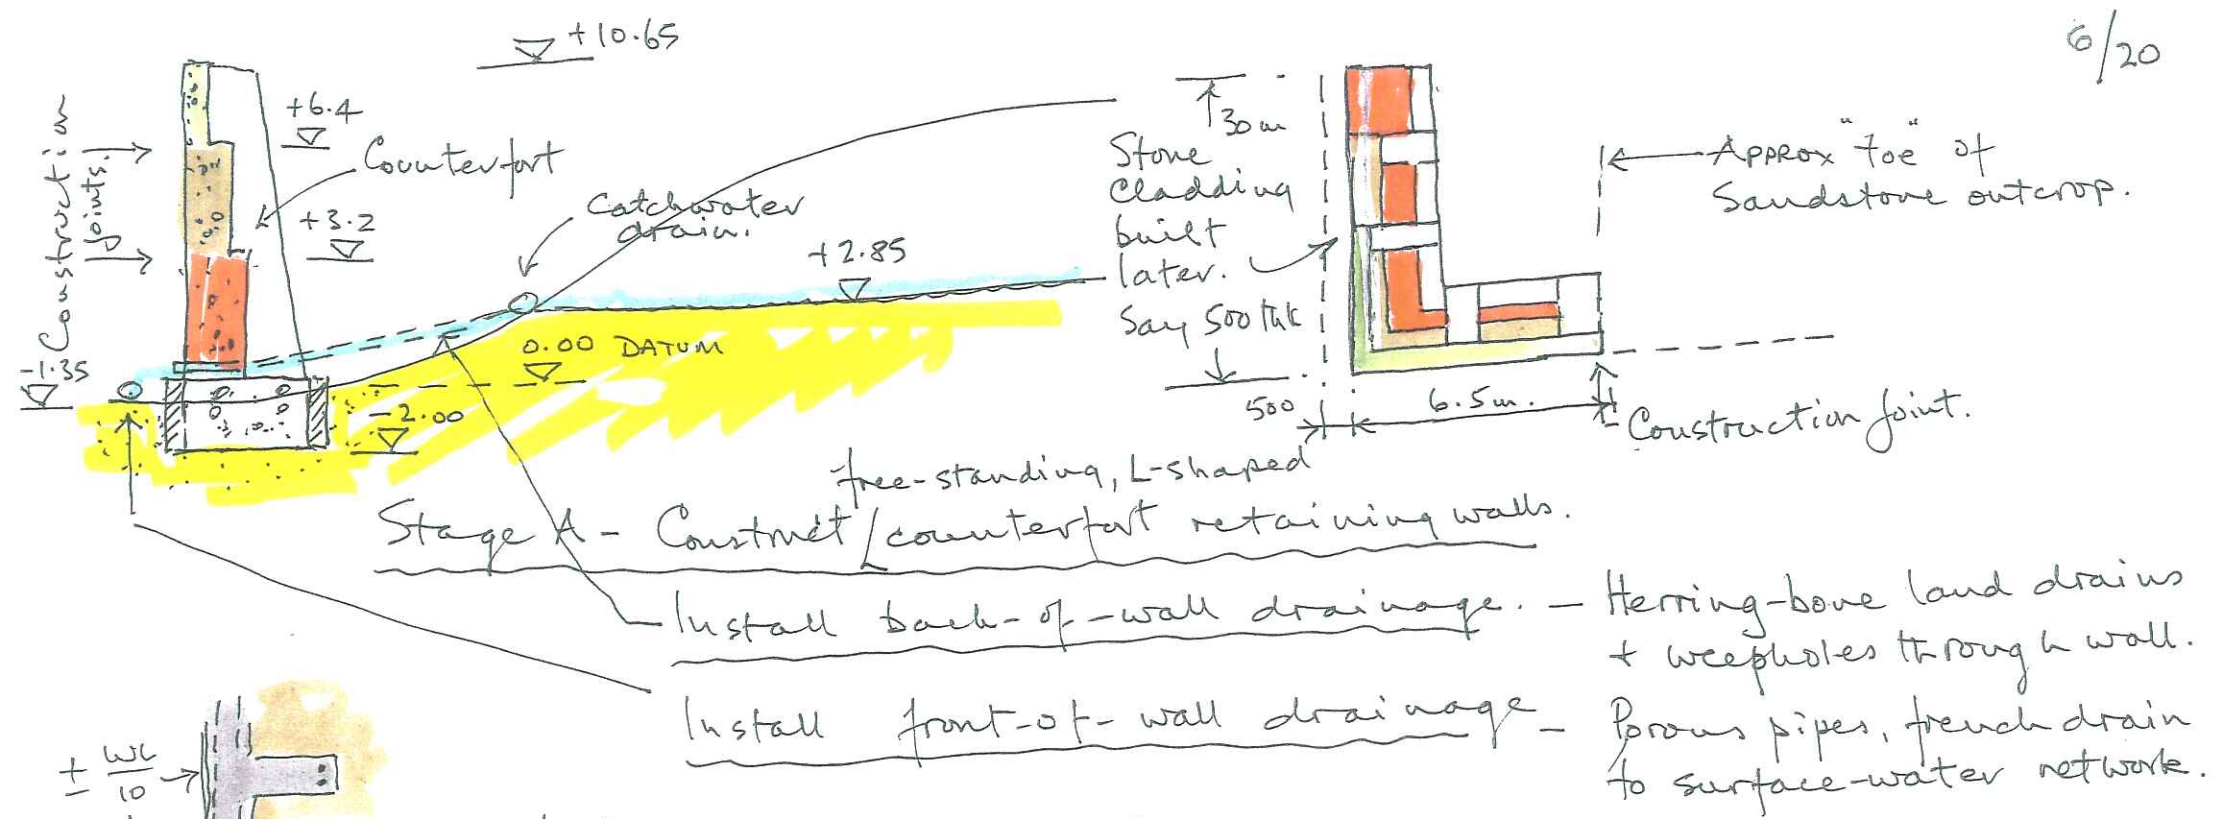 6/20
+10.65
Construction
joints.
+6.4
Counterfort
+3.2
Catchwater
drain.
+2.85
0.00 DATUM
-1.35
-2.00
30m
Stone
cladding
built
later.
Say 500 thk
500
6.5m.
Approx "toe" of
Sandstone outcrop.
Construction joint.
free-standing, L-shaped
Stage A - Construct / counterfort retaining walls.
Install back-of-wall drainage. - Herring-bone land drains
+ weepholes through wall.
Install front-of-wall drainage - Porous pipes, french drain
to surface-water network.
± WL
10